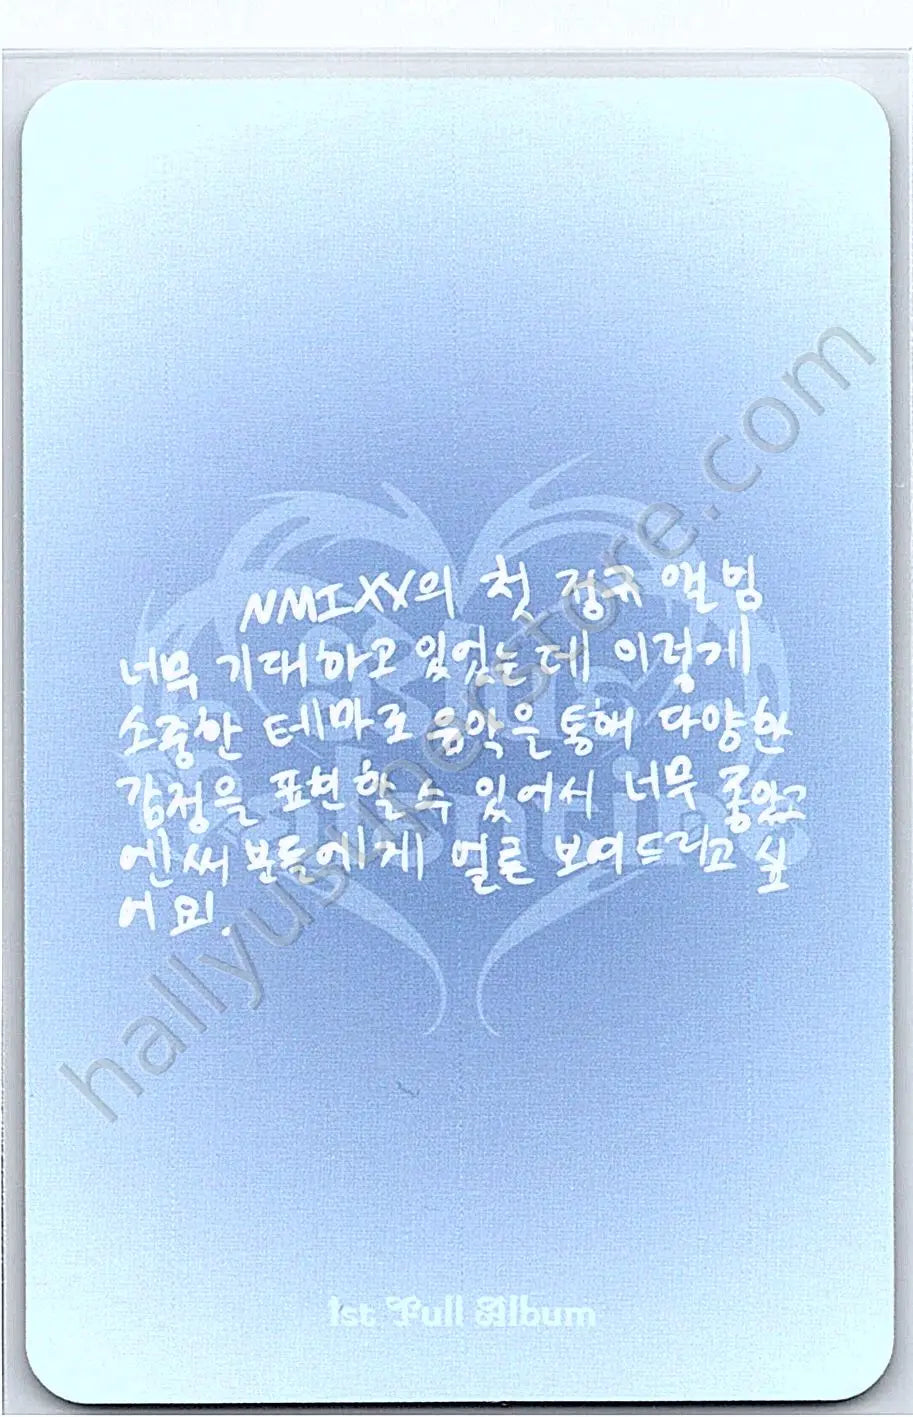 NMIXX의 첫 정규 앨범
너무 기대하고 있었는데 이렇게
소중한 테마로 음악을 통해 다양한
감정을 표현할 수 있어서 너무 좋았고
엔써 분들에게 얼른 보여드리고 싶
어요!.
1st Full Album
hallyusuperstore.com